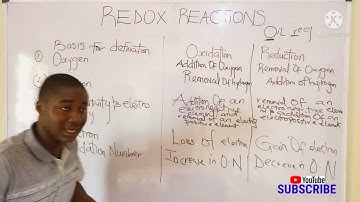 REDOX REACTIONS
Oil
Basis for defination
① Oxygen
Number
Oxidation
Addition Of Oxygen
Removal Of hydrogen
Addition Of an
electronegative
element and
removal of an
positive element
Loss of electron
Increase in O.N
Reduction
Removal Of Oxygen
Addition of hydrogen
removal Of an
electronegative
Addition Of an
electropositive element
Gain Of electron
Decrease in O.N
YouTube
SUBSCRIBE